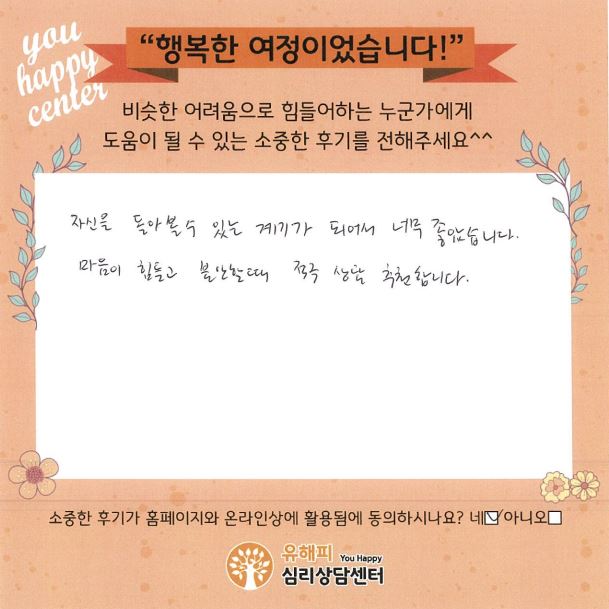 you
happy
center
“행복한 여정이었습니다!”
비슷한 어려움으로 힘들어하는 누군가에게
도움이 될 수 있는 소중한 후기를 전해주세요^^
자신을 돌아볼수 있는 계기가 되어서 너무 좋았습니다.
마음이 힘들고 불안할때 적극 상담 추천합니다.
소중한 후기가 홈페이지와 온라인상에 활용됨에 동의하시나요? 네☑/아니오☐
유해피 You Happy
심리상담센터